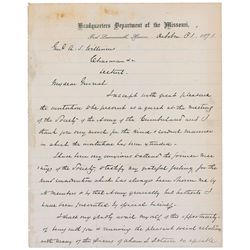 Headquarters Department of the Missouri,
Fort Leavenworth, Kansas, October 31, 1871.
Genl A. S. Williams
Chairman &c
Detroit
My dear General
I accept with great pleasure
the invitation you present as a guest at the meeting
of the Society of the Army of the Cumberland and I
thank you very much for the kind & cordial manner
in which the invitation has been extended.
I have been very anxious to attend the former meet-
ings of the Society to testify my grateful feeling for the
kind consideration which has always been shown me by
its members & by that Army generally but hitherto I
have been prevented by
I shall very gladly avail myself of this opportunity
of being with you & renewing the pleasant social relations
with many of the of whom I